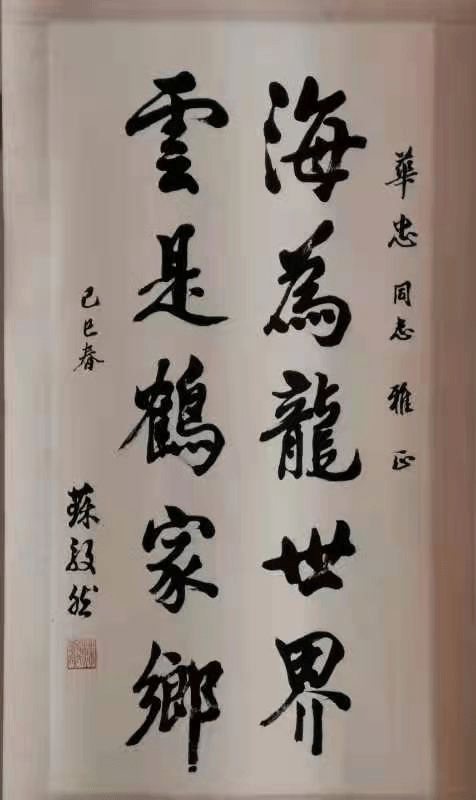 華忠同志雅正
海為龍世界
雲是鶴家鄉
己巳春
毅然